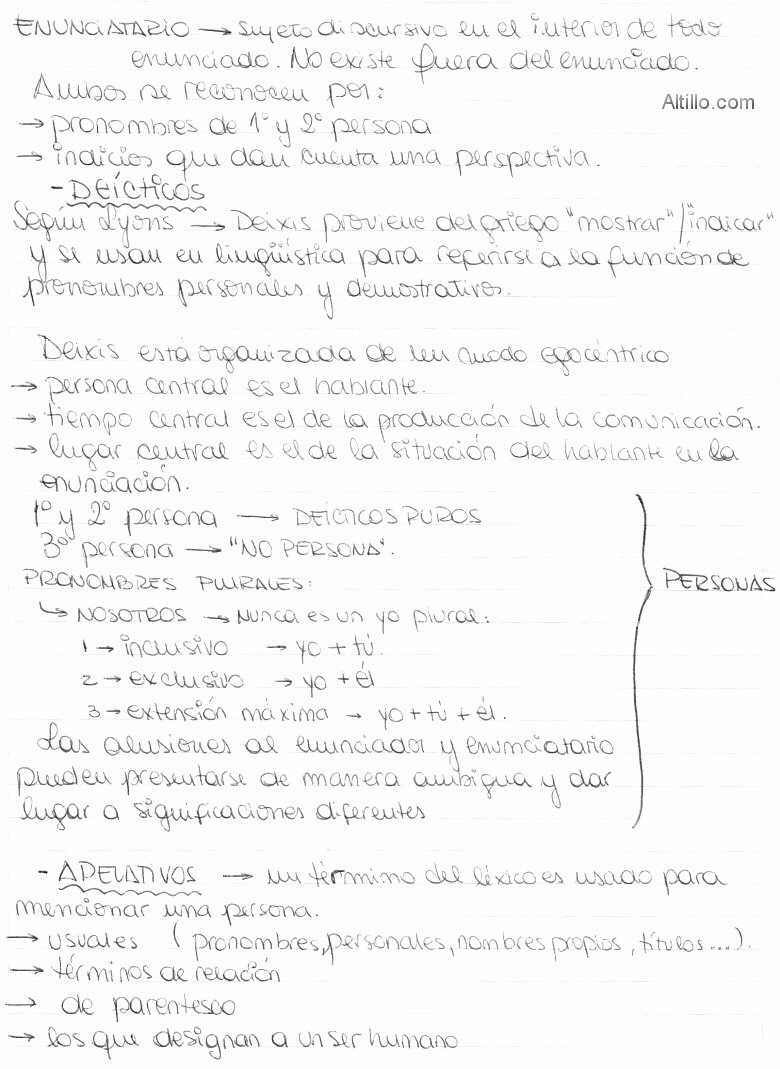 ENUNCIATARIO → sujeto discursivo en el interior de todo
enunciado. No existe fuera del enunciado.
Ambos se reconocen por:
Altillo.com
→ pronombres de 1° y 2° persona
→ indicios que dan cuenta una perspectiva.
- DEÍCTICOS
Según Lyons → Deixis proviene del griego "mostrar"/"indicar"
y se usan en lingüística para referirse a la función de
pronombres personales y demostrativos.
Deixis está organizada de un modo egocéntrico
→ persona central es el hablante.
→ tiempo central es el de la producción de la comunicación.
→ lugar central es el de la situación del hablante en la
enunciación.
1° y 2° persona → DEICTICOS PUROS
3° persona → "NO PERSONA".
PRONOMBRES PLURALES:
PERSONAS
↳ NOSOTROS → Nunca es un yo plural:
1 → inclusivo → yo + tú.
2 → exclusivo → yo + él
3 → extensión máxima → yo + tú + él.
Las alusiones al enunciador y enunciatario
pueden presentarse de manera ambigua y dar
lugar a significaciones diferentes
- APELATIVOS → un término del léxico es usado para
mencionar una persona.
→ usuales (pronombres, personales, nombres propios, títulos...).
→ términos de relación
→ de parentesco
→ los que designan a un ser humano